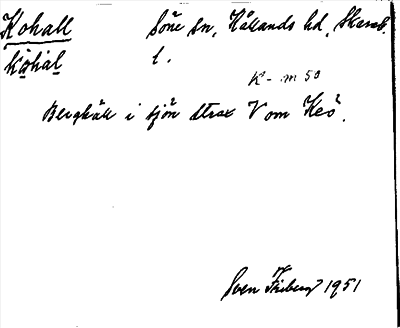 Kohall Söne sn, Kållands hd, Skarab.
kọ̈hạl l.
K-m 50
Berghäll i sjön strax V om Keö.
Sven Friberg 1951